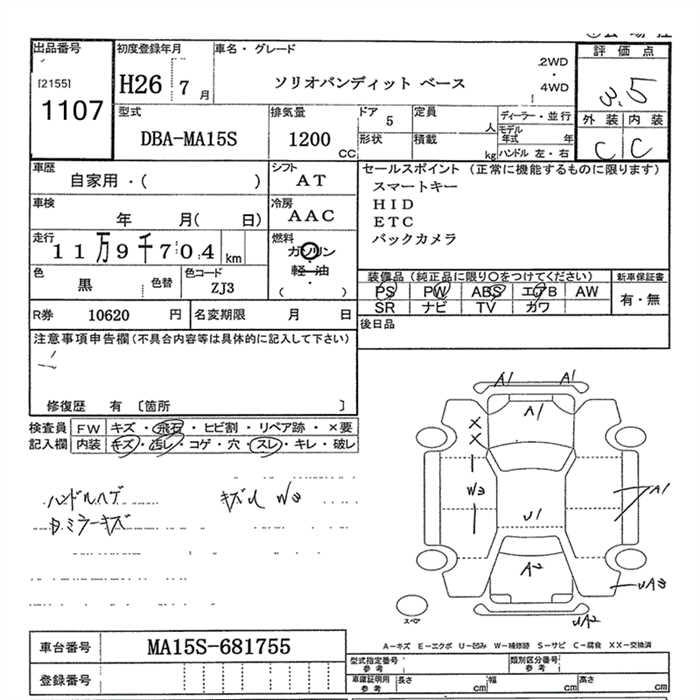 出品番号 初度登録年月 車名・グレード 評価点
[2155] 1107
H26 7 月
ソリオバンディット ベース
2WD
4WD
3.5
型式 排気量 ドア 定員 ディーラー・並行 外装 内装
DBA-MA15S 1200 CC 5 人 モデル年式 年 C C
形状 積載 kg ハンドル 左・右
車歴 シフト セールスポイント (正常に機能するものに限ります)
自家用・( ) AT スマートキー
車検 冷房 HID
年 月( 日) AAC ETC
走行 燃料 バックカメラ
11万9千704 km ガソリン
軽・油
( )
色 色コード 装備品 (純正品に限り○をつけてください) 新車保証書
黒 色替 ZJ3 PS PW ABS エアB AW 有・無
SR ナビ TV カワ
R券 10620 円 名変期限 月 日 後日品
注意事項申告欄 (不具合内容等は具体的に記入して下さい)
修復歴 有 〔箇所 〕
検査員 FW キズ・飛石・ヒビ割・リペア跡・×要
記入欄 内装 キズ・汚レ・コゲ・穴・スレ・キレ・破レ
A1 A1
A1
×
×
W3 A1
U1
A2
UA3
UA2
スペア
キズU W3
ミラーキズ
車台番号 MA15S-681755
登録番号
A-キズ E-エクボ U-凹み W-補修跡 S-サビ C-腐食 XX-交換済
型式指定番号 参考 類別区分番号 参考
車庫証明用 参考 長さ cm 幅 cm 高さ cm